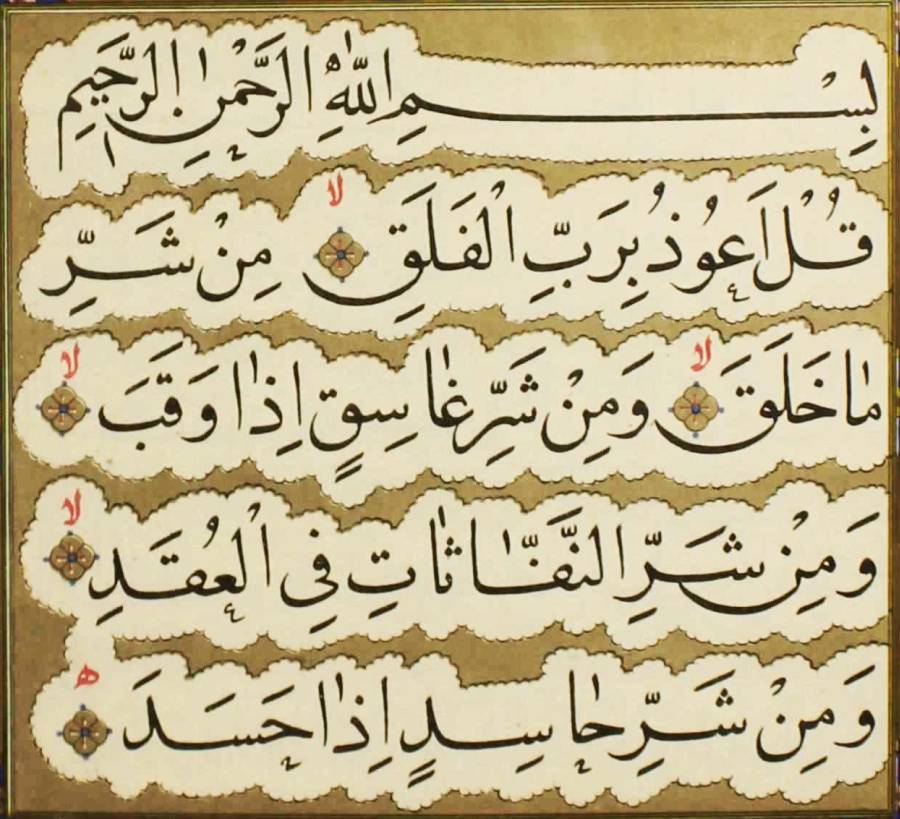 بِسْمِ اللّٰهِ الرَّحْمٰنِ الرَّحِيمِ
قُلْ اَعُوذُ بِرَبِّ الْفَلَقِ لا مِنْ شَرِّ
مٰا خَلَقَ لا وَمِنْ شَرِّ غٰاسِقٍ اِذٰا وَقَبَ لا
وَمِنْ شَرِّ النَّفّٰاثٰاتِ فِى الْعُقَدِ لا
وَمِنْ شَرِّ حٰاسِدٍ اِذٰا حَسَدَ ه